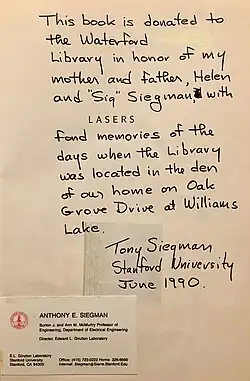 This book is donated to
the Waterford
Library in honor of my
mother and father, Helen
and "Sig" Siegman, with
LASERS
fond memories of the
days when the Library
was located in the den
of our home on Oak
Grove Drive at Williams
Lake.
Tony Siegman
Stanford University
June 1990.
ANTHONY E. SIEGMAN
Burton J. and Ann M. McMurtry Professor of
Engineering, Department of Electrical Engineering
Director, Edward L. Ginzton Laboratory
E.L. Ginzton Laboratory
Stanford University
Stanford, CA 94305
Office: (415) 723-0222 Home: 326-6669
Internet: Siegman@Sierra.Stanford.Edu